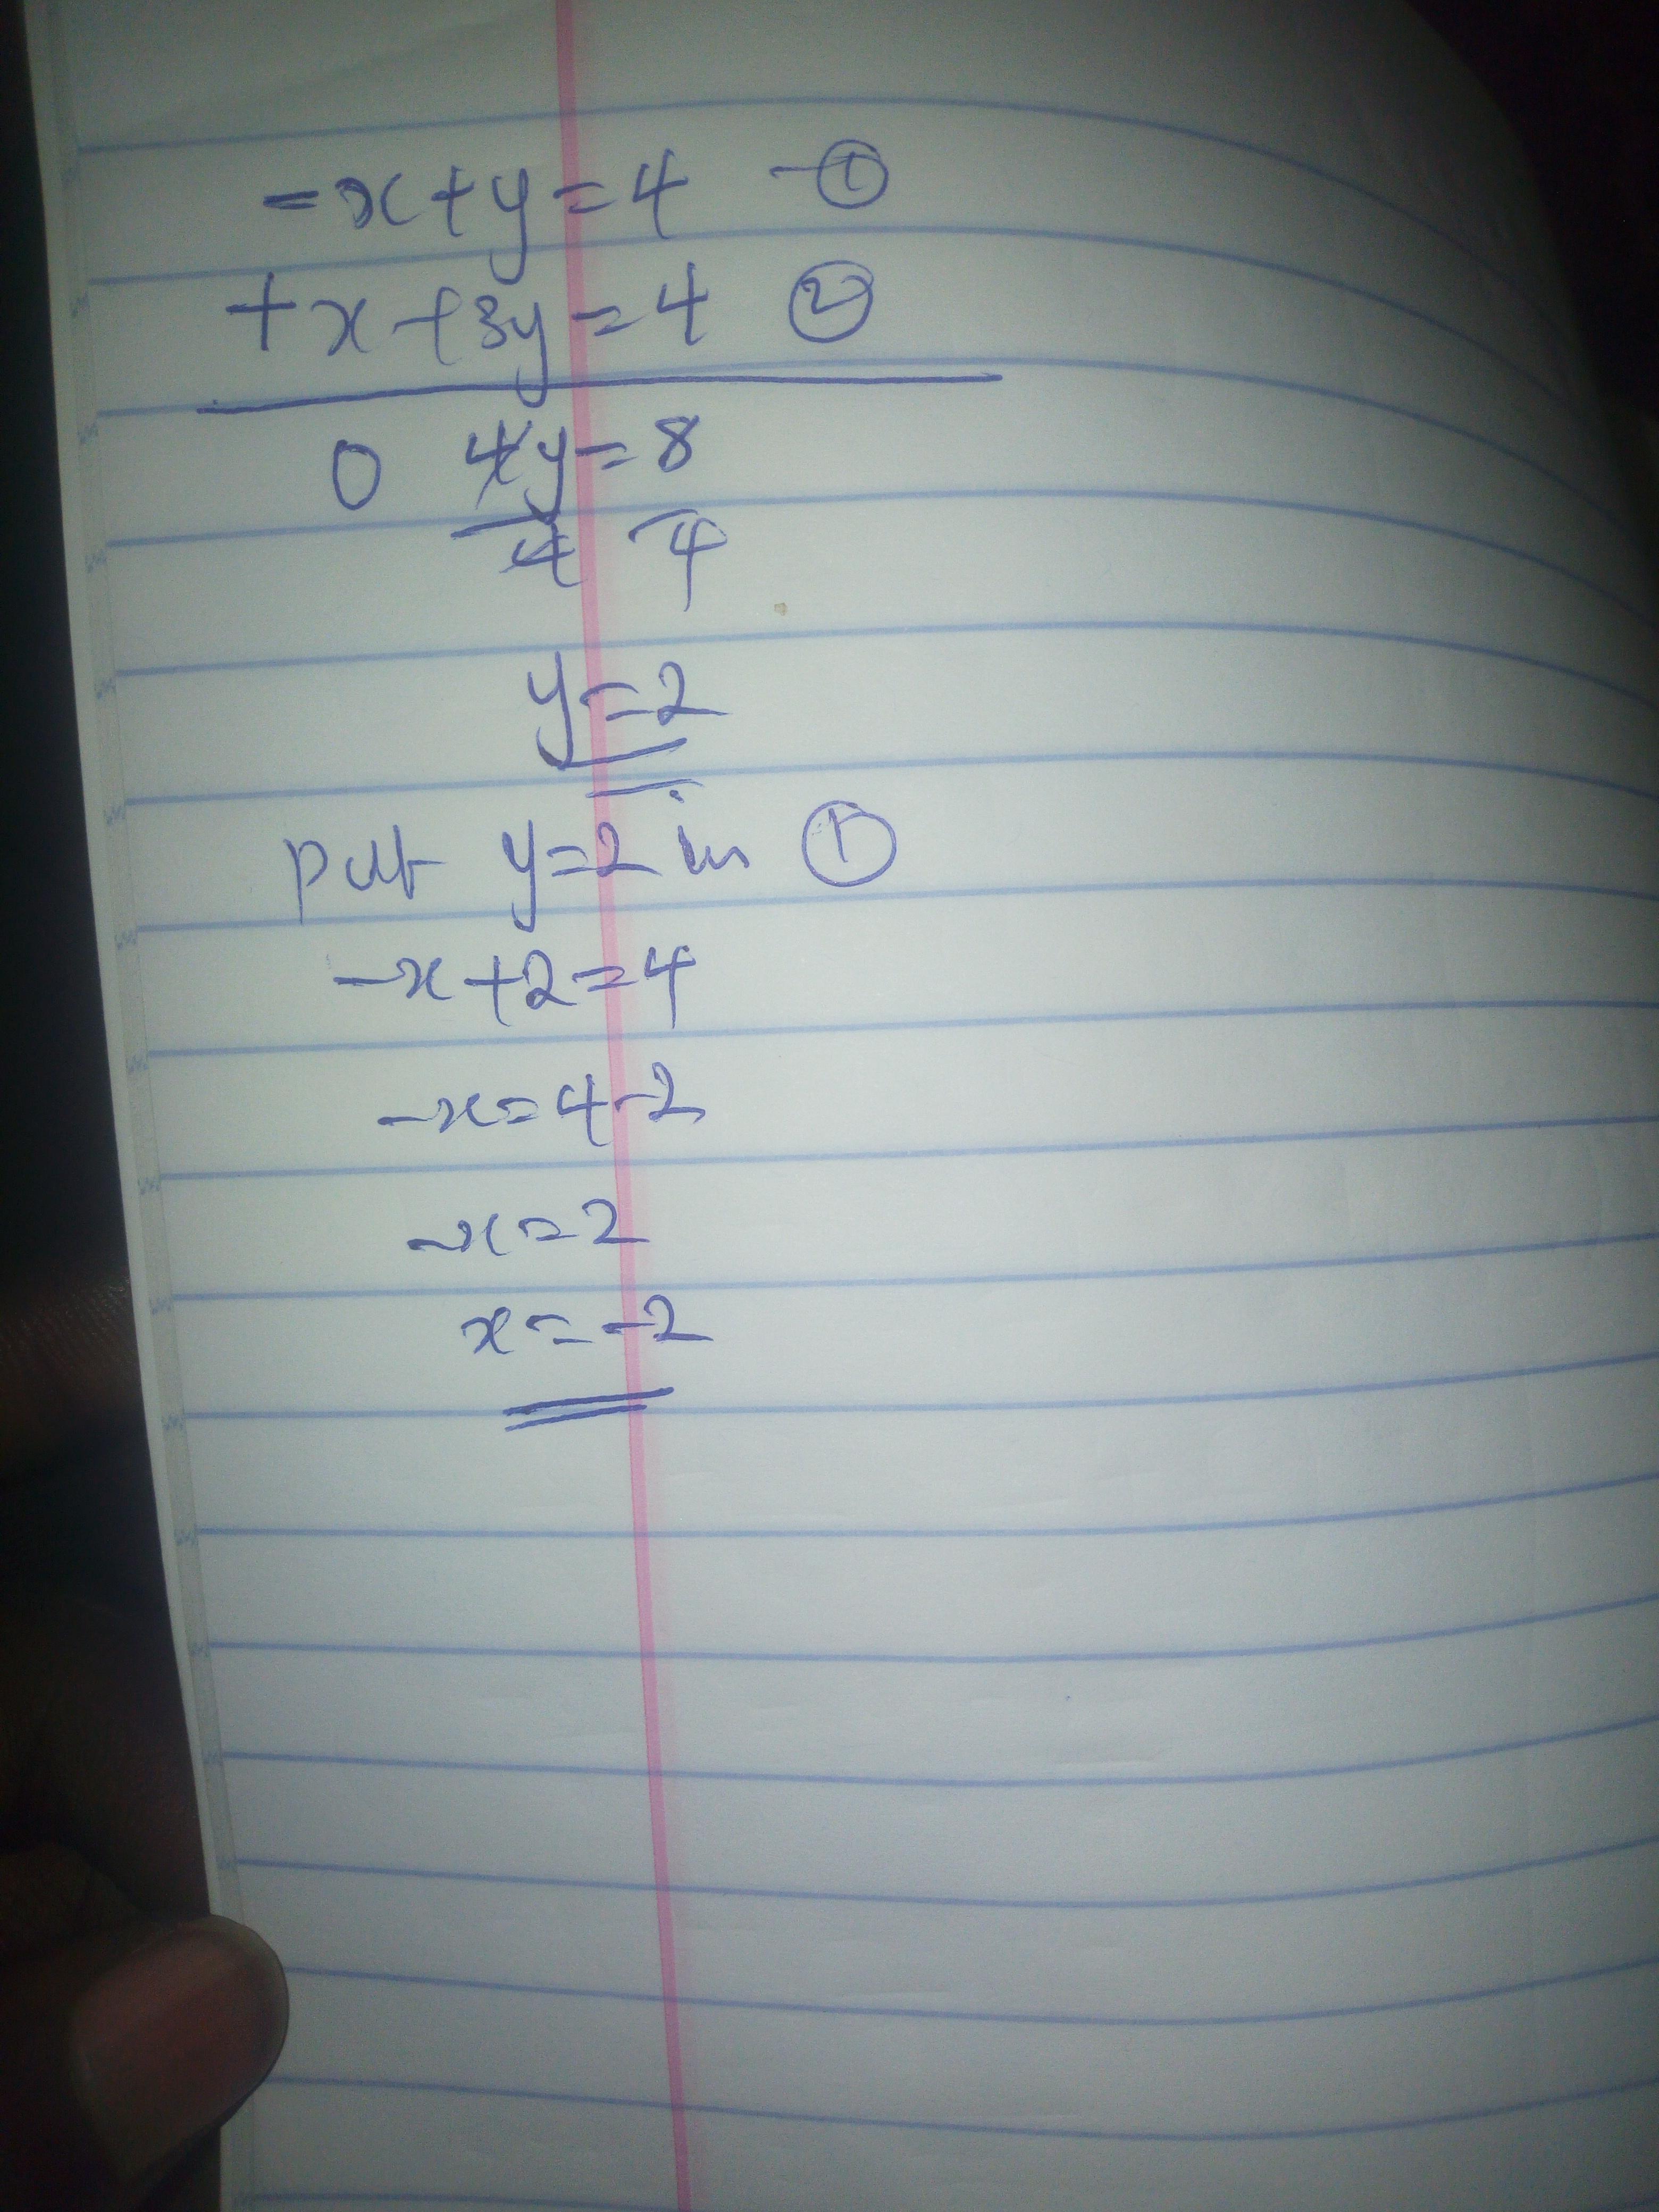 -x+y=4 -①
+x+3y=4 ②
0 4y=8
4 4
y=2
put y=2 in ①
-x+2=4
-x=4-2
-x=2
x=-2